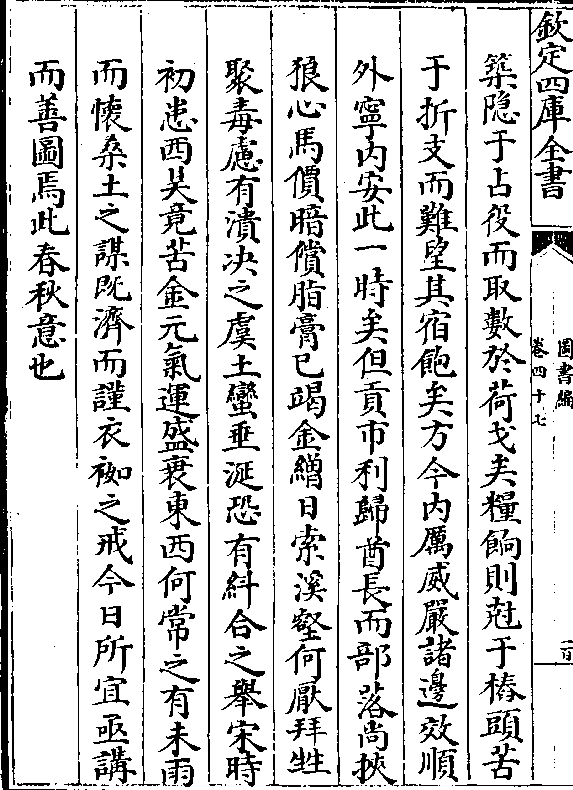 欽定四庫全書
圖書編
卷四十七
築隱于占役而取數於荷戈矣糧餉則尅于樁頭苦
于折支而難望其宿飽矣方今内厲威嚴諸邊效順
外寧内安此一時矣但貢市利歸酋長而部落尚挾
狼心馬價暗償脂膏已竭金繒日索溪壑何厭拜甡
聚毒慮有潰決之虞土蠻垂涎恐有糾合之舉宋時
初患西吴竟苦金元氣運盛衰東西何常之有未雨
而懷桑土之謀既濟而謹衣袽之戒今日所宜亟講
而善圖焉此春秋意也